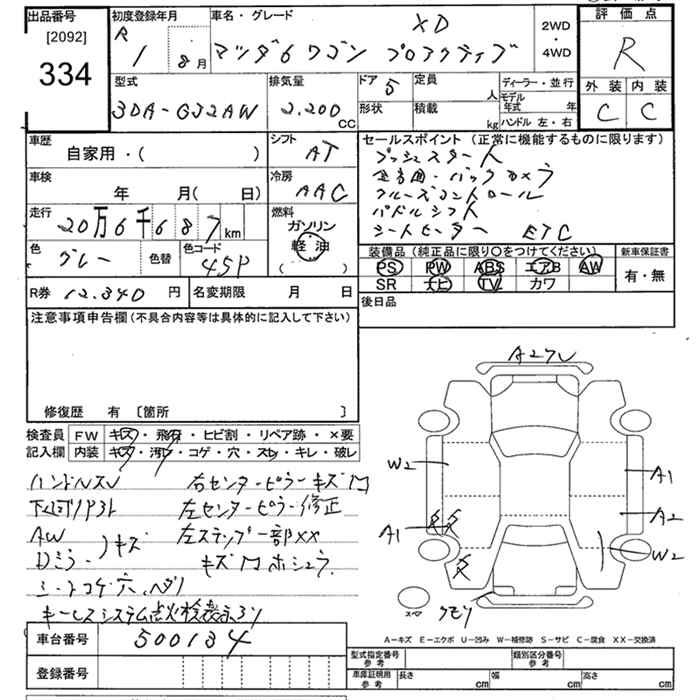 出品番号
[2092]
334
初度登録年月
R 1 8月
車名・グレード
XD
マツダ6 ワゴン プロアクティブ
2WD
・
4WD
評価点
R
外装 内装
C C
型式
3DA-GJ2AW
排気量
2.200 CC
ドア
5
形状
定員
人
積載
kg
ディーラー・並行
モデル
年式 年
ハンドル 左・右
車歴
自家用・( )
シフト
AT
車検
年 月( 日)
冷房
AAC
走行
20万6千687km
燃料
ガソリン
軽油
( )
色
グレー
色替
色コード
45P
R券 12.340 円
名変期限 月 日
セールスポイント (正常に機能するものに限ります)
プッシュスタート
全方面・バックカメラ
クルーズコントロール
パドルシフト
シートヒーター ETC
装備品(純正品に限り〇をつけてください)
PS PW ABS エアB AW
SR ナビ TV カワ
新車保証書
有・無
後日品
注意事項申告欄(不具合内容等は具体的に記入して下さい)
修復歴 有 〔箇所 〕
検査員
記入欄
FW キズ・飛石・ヒビ割・リペア跡・×要
内装 キズ・汚レ・コゲ・穴・スレ・キレ・破レ
ハンドルスレ
右センターピラーキズ凹
下廻りサビ
左センターピラー修正
AW
Dミラー
キズ
左ステップ一部XX
キズ凹
シートコゲ穴
キーレスシステム点火検表示あり
A27レ
W2
A1
A1
A2
W2
スペア
クモリ
A-キズ E-エクボ U-凹み W-補修跡 S-サビ C-腐食 XX-交換済
車台番号
500134
登録番号
型式指定番号
参考
類別区分番号
参考
車庫証明用
参考
長さ cm
幅 cm
高さ cm